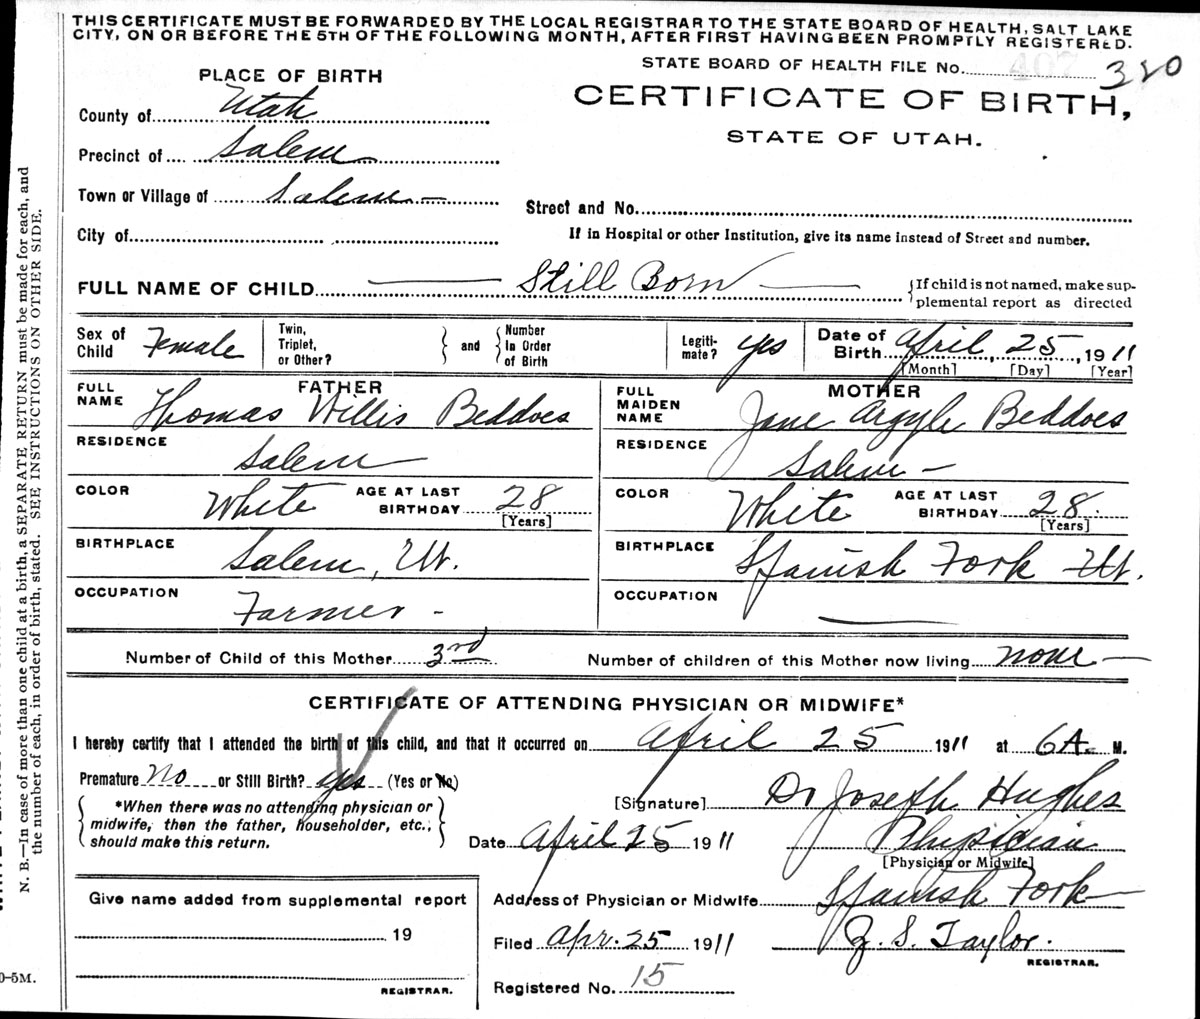 THIS CERTIFICATE MUST BE FORWARDED BY THE LOCAL REGISTRAR TO THE STATE BOARD OF HEALTH, SALT LAKE
CITY, ON OR BEFORE THE 5TH OF THE FOLLOWING MONTH, AFTER FIRST HAVING BEEN PROMPTLY REGISTERED.
STATE BOARD OF HEALTH FILE No. 407 320
PLACE OF BIRTH
CERTIFICATE OF BIRTH,
STATE OF UTAH.
County of Utah
Precinct of Salem
Town or Village of Salem
Street and No.
City of
If in Hospital or other Institution, give its name instead of Street and number.
FULL NAME OF CHILD Still Born
{If child is not named, make sup-
plemental report as directed
Sex of Child Female Twin, Triplet, or Other? } and { Number In Order of Birth Legiti-mate? yes Date of Birth April 25, 1911
[Month] [Day] [Year]
FATHER
FULL NAME Thomas Willis Beddoes
RESIDENCE Salem
COLOR White AGE AT LAST BIRTHDAY 28
[Years]
BIRTHPLACE Salem, Ut.
OCCUPATION Farmer -
MOTHER
FULL MAIDEN NAME Jane Argyle Beddoes
RESIDENCE Salem -
COLOR White AGE AT LAST BIRTHDAY 28.
[Years]
BIRTHPLACE Spanish Fork Ut.
OCCUPATION
Number of Child of this Mother 3rd Number of children of this Mother now living none
CERTIFICATE OF ATTENDING PHYSICIAN OR MIDWIFE*
I hereby certify that I attended the birth of this child, and that it occurred on April 25 1911 at 6 A. M.
Premature No or Still Birth? yes (Yes or No)
*When there was no attending physician or
midwife, then the father, householder, etc.,
should make this return.
[Signature] Dr Joseph Hughes
Date April 25 1911 Physician
[Physician or Midwife]
Give name added from supplemental report
19
REGISTRAR.
Address of Physician or Midwife Spanish Fork
Filed Apr. 25 1911 Z. S. Taylor.
REGISTRAR.
Registered No. 15
N. B.—In case of more than one child at a birth, a SEPARATE RETURN must be made for each, and
the number of each, in order of birth, stated. SEE INSTRUCTIONS ON OTHER SIDE.
0-5M.